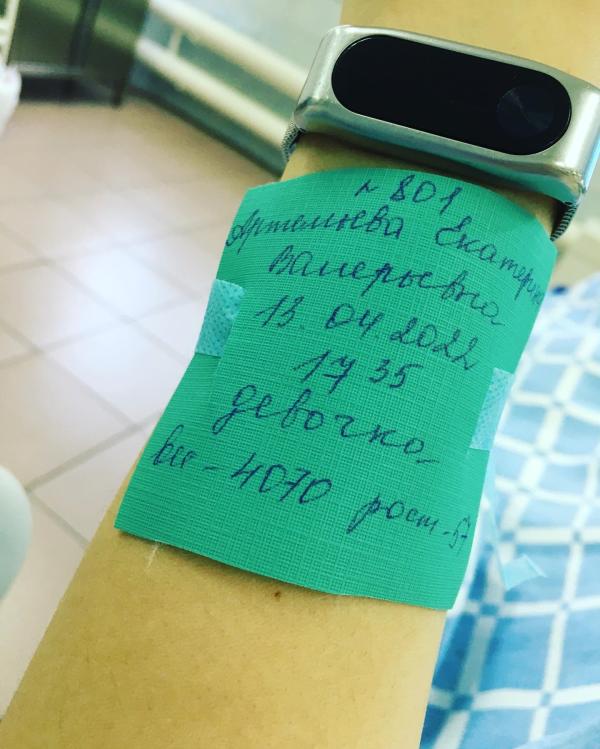 № 801
Артемьева Екатерина
Валерьевна
13.04.2022
17 35
девочка
вес-4070 рост-57